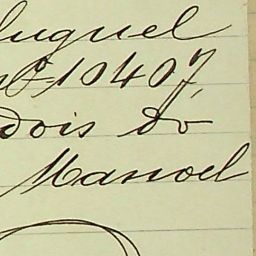 luguel
nº 10407,
dois do
Manoel